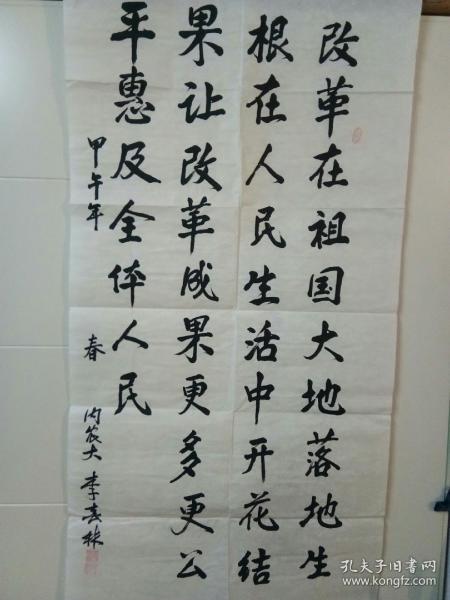 改革在祖国大地落地生
根在人民生活中开花结
果让改革成果更多更公
平惠及全体人民
甲午年 春 内农大 李春林
孔夫子旧书网
www.kongfz.com